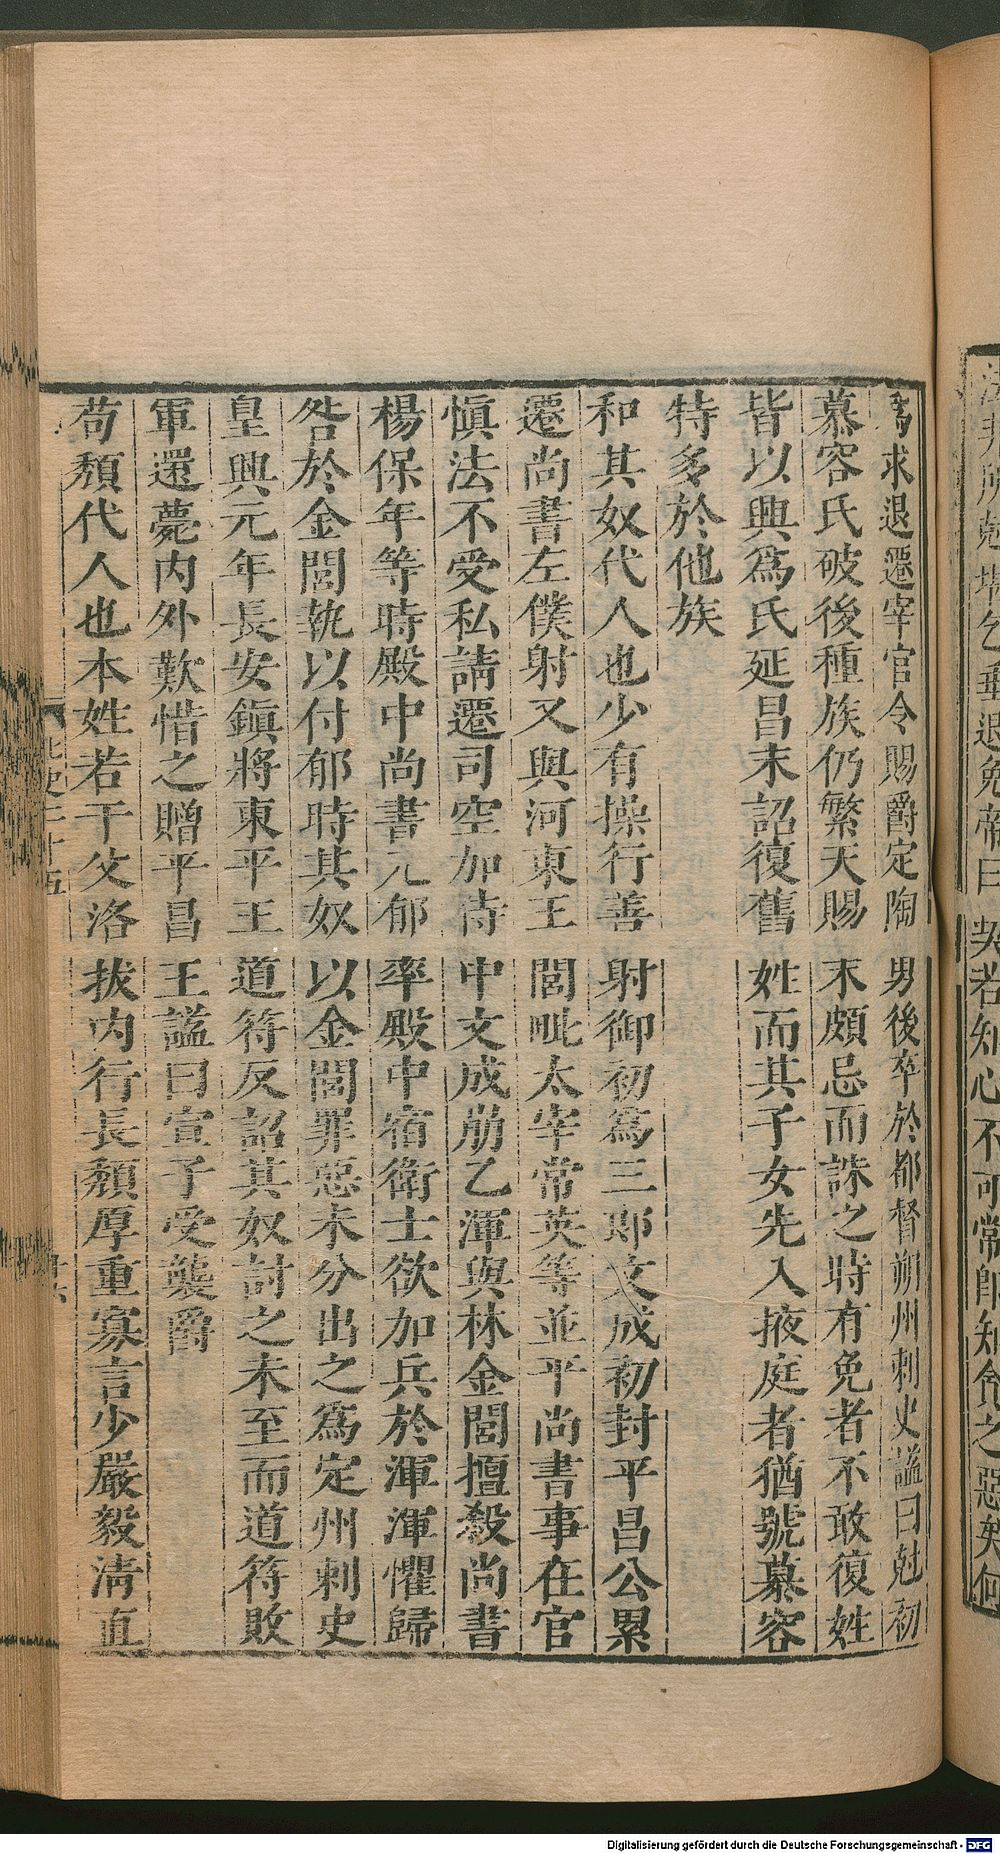 法非所剋堪乞垂退免帝曰契若知心不可常師知令之惡矣何
爲求退遷宰官令賜爵定陶男後卒於都督朔州刺史謚曰尅初
慕容氏破後種族仍繁天賜末頗忌而誅之時有免者不敢復姓
皆以輿爲氏延昌末詔復舊姓而其子女先入掖庭者猶號慕容
特多於他族
和其奴代人也少有操行善射御初爲三郎文成初封平昌公累
遷尚書左僕射又與河東王閭毗太宰常英等並平尚書事在官
愼法不受私請遷司空加侍中文成崩乙渾與林金閭擅殺尚書
楊保年等時殿中尚書元郁率殿中宿衛士欲加兵於渾渾懼歸
咎於金閭執以付郁時其奴以金閭罪惡未分出之爲定州刺史
皇興元年長安鎮將東平王道符反詔其奴討之未至而道符敗
軍還薨内外歎惜之贈平昌王謚曰宣子受襲爵
苟頹代人也本姓若干父洛拔内行長頹厚重寡言少嚴毅淸直
北史二十五
Digitalisierung gefördert durch die Deutsche Forschungsgemeinschaft - DFG